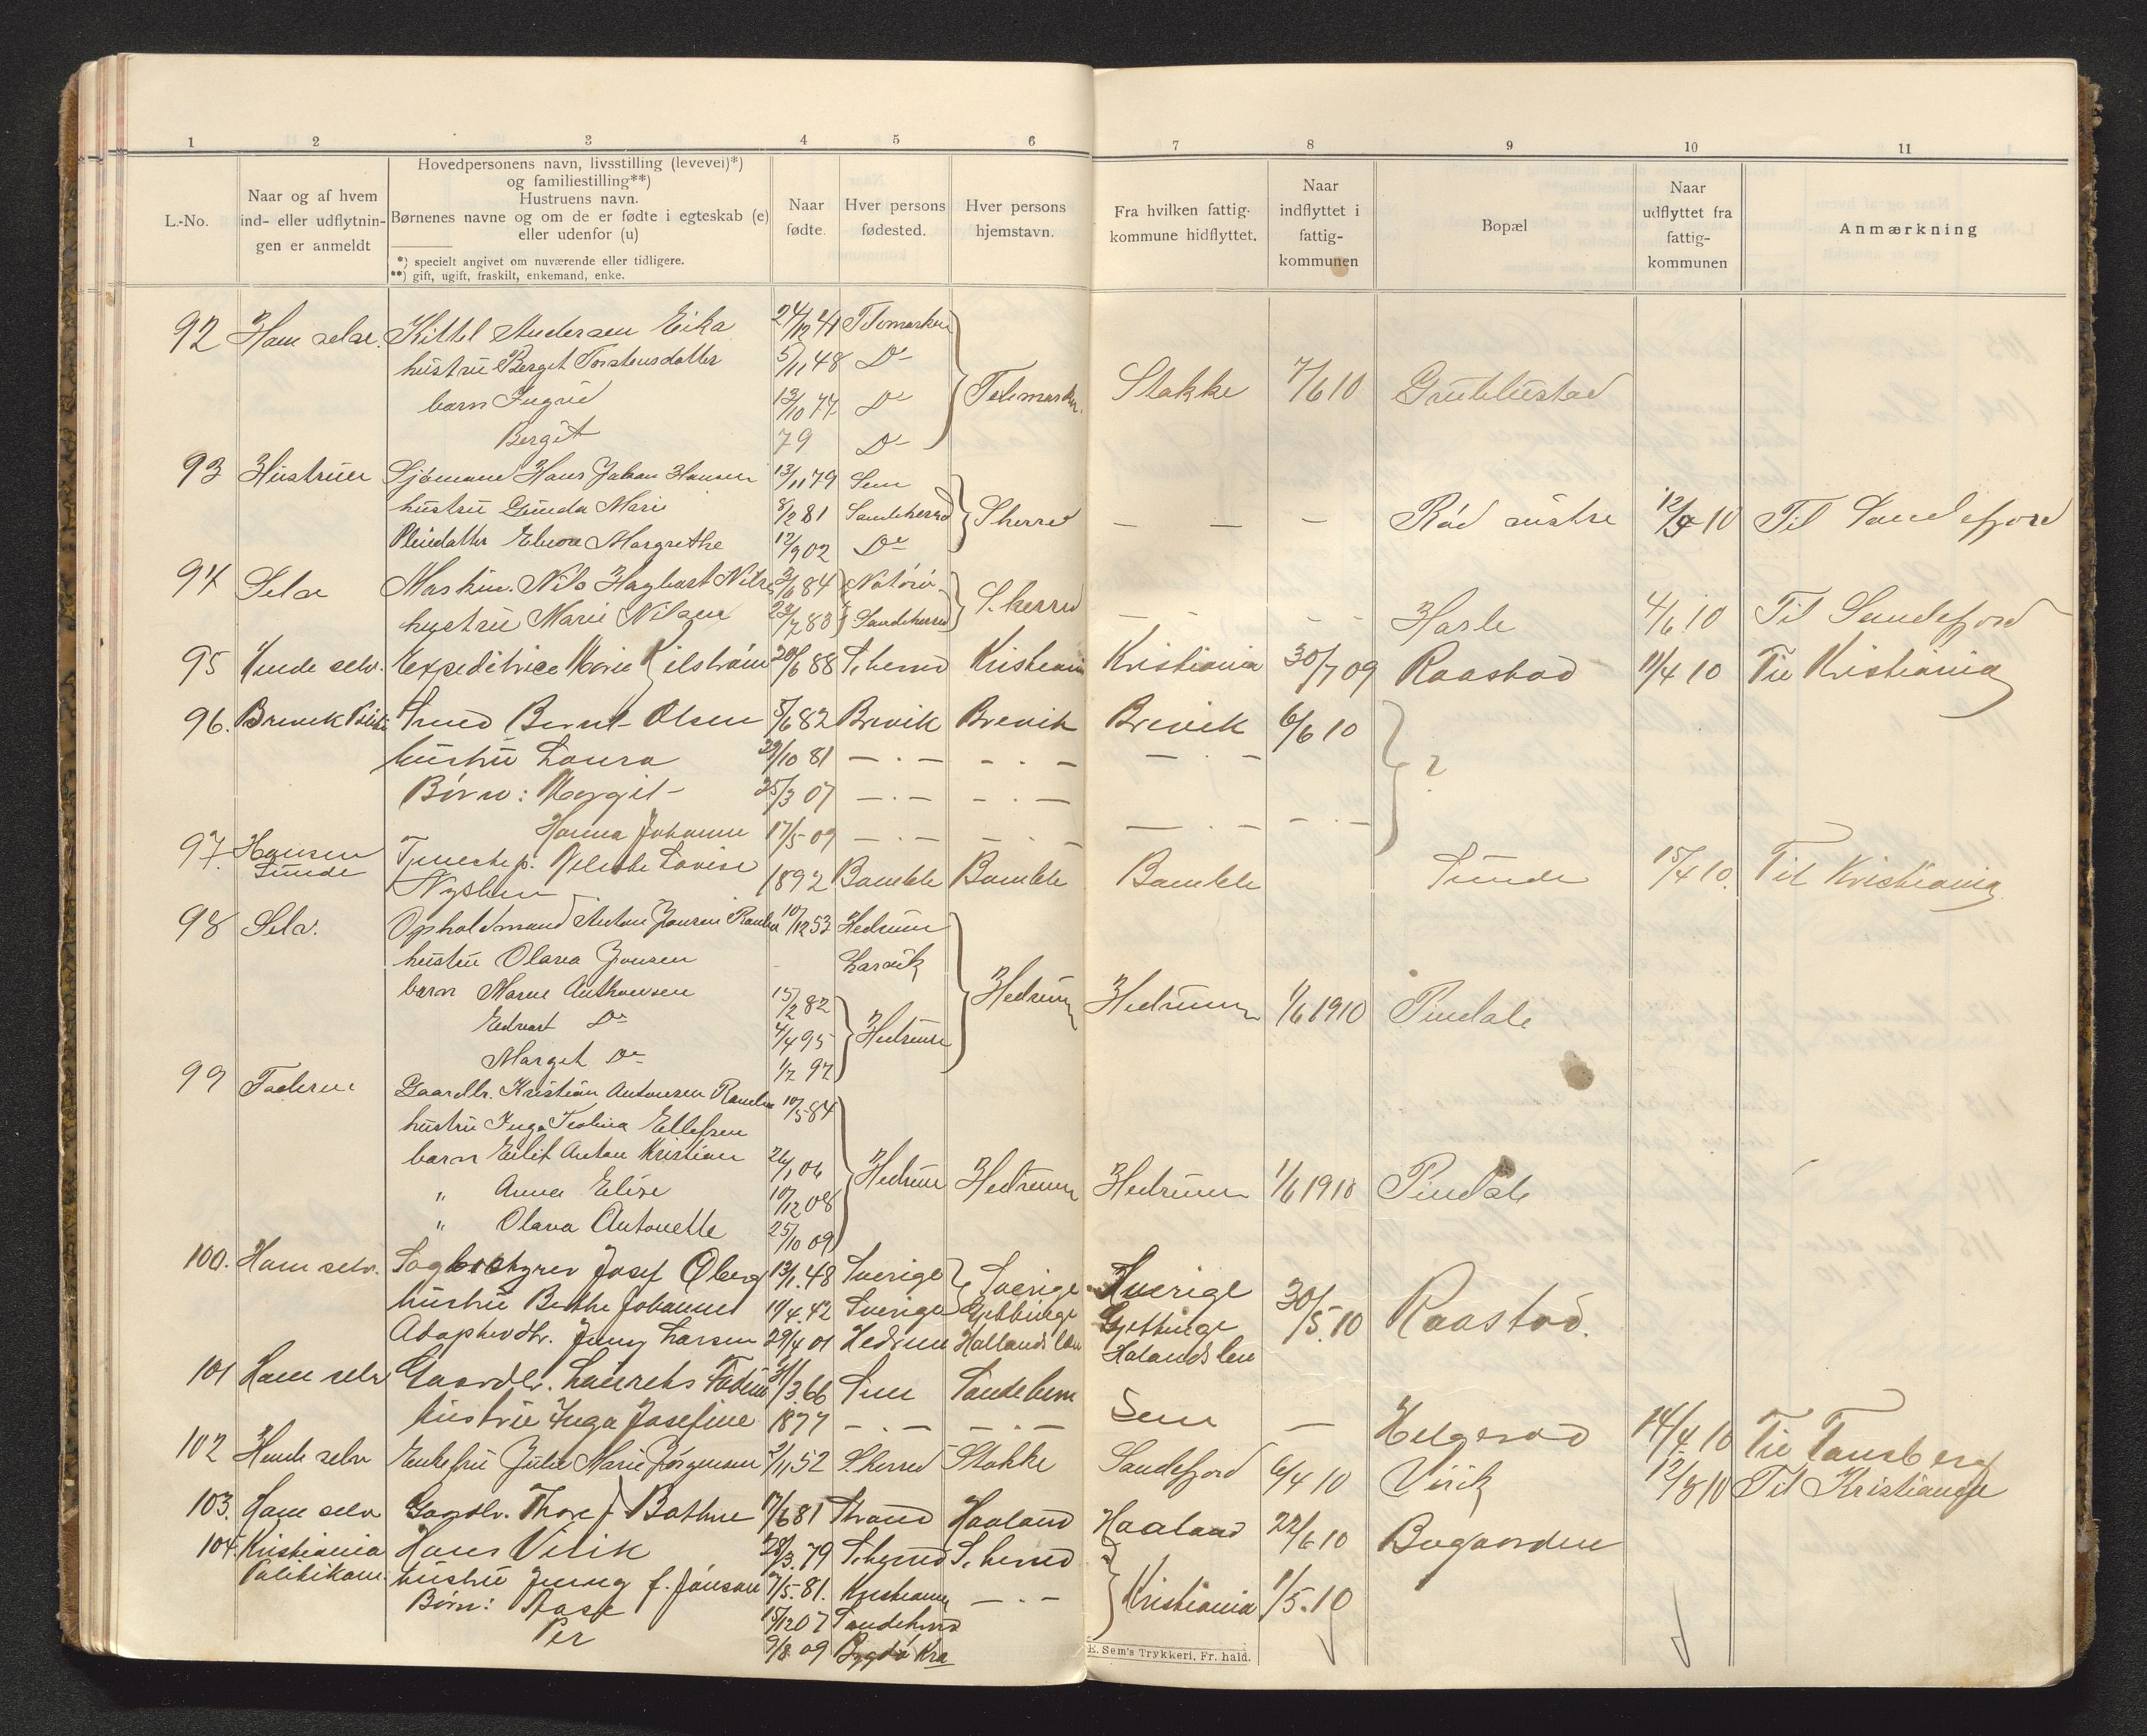 1 2 3 4 5 6 7 8 9 10 11
L.-No.
Naar og af hvem
ind- eller udflytnin-
gen er anmeldt
Hovedpersonens navn, livsstilling (levevei)*)
og familiestilling**)
Hustruens navn.
Børnenes navne og om de er fødte i egteskab (e)
eller udenfor (u)
*) specielt angivet om nuværende eller tidligere.
**) gift, ugift, fraskilt, enkemand, enke.
Naar
fødte.
Hver persons
fødested.
Hver persons
hjemstavn.
Fra hvilken fattig-
kommune hidflyttet.
Naar
indflyttet i
fattig-
kommunen
Bopæl
Naar
udflyttet fra
fattig-
kommunen
Anmærkning
92 Ham selv. Kittel Andersen Eika 24/12 41 Telemarken
hustru Berget Torstensdatter 5/11 48 Do
barn Ingrid 13/10 77 Do Telemarken Stokke 7/6 10
Bergit 79 Do
93 Hustruen Sjømand Hans Johan Hansen 13/11 79 Sem
hustru Gunda Marie 8/2 81 Sandeherred S.herred — — — Rød østre 12/4 10 Til Sandefjord
Pleiedatter Margrethe 12/9 02 Do
94 Selv Maskin. Nils Hagbart Nilsen 3/6 84 Nøterø
hustru Marie Nilsen 23/7 83 Sandeherred S.herred — - - - Hasle 4/6 10 Til Sandefjord
95 Hende selv. Expeditrice Marie 20/6 88 S.herred Kristiania Kristiania 30/7 09 Raastad 11/4 10 Til Kristiania
96. Brevik Bernt Olsen 5/6 82 Brevik Brevik Brevik 6/6 10 ?
hustru Laura 29/10 81 — . — — . — — . —
Børn: Margit 25/3 07 — . — — . —
Hanna Johanne 17/5 09 — . — — . — — . — - . -
97. Hansen
Sunde
Tjenestep. Lovise 1892 Bamble Bamble Bamble Sunde 15/4 10. Til Kristiania
98 Selv. Opholdsmand Anton Jonsen 10/12 53 Hedrum
hustru Olava Jonsen - Larvik
barn Marie Anthonsen 15/2 82 Hedrum Hedrum 1/6 1910 Pindsle
Edvart Do 4/4 95 Hedrum
Margit Do 1/2 97
99 Faderen Gaardbr. Kristian Antonsen 10/5 84
hustru Inga Teolina Ellefsen
barn Eilif Anton Kristian 06 Hedrum Hedrum Hedrum 1/6 1910 Pindsle
" Anna Elise 10/12 08
" Olava Antonette 25/10 09
100. Ham selv. Sagbestyrer Josef Øberg 13/1. 48 Sverige Sverige Sverige 30/5. 10 Raastad.
hustru Berthe Johanne 19/4. 42 Sverige Gettinge Gettinge
Adoptivdtr. Jenny Larsen 29/4 01 Hedrum Hallands län Halands len
101 Ham selv Gaardbr. Laurits 31/3 66 Sem Sandeherr Sem — Helgerød 14/4 10 Til Tønsberg
hustru Inga Josefine 1877 — . — — . —
102 Hende selv Enkefru Julie Marie Jørgensen 2/11 52 S.herred Stokke Sandefjord 6/4 10 Virik 12/8 10 Til Kristiania
103. Ham selv Gaardbr. Thore J. 17/6 81 Strand Haaland Haaland 22/6 10 Bugaarden
104. Kristiania
Politikam. Hans Virik 28/3. 79 S.herred S.herred
hustru Jenny f. Jonsen 7/5. 81. Kristiania — . — Kristiania 1/5. 10
Børn: Aase 15/12 07 Sandeherred
Per 9/8 09 Bygdø Kra
E. Sem's Trykkeri, Fr. hald.